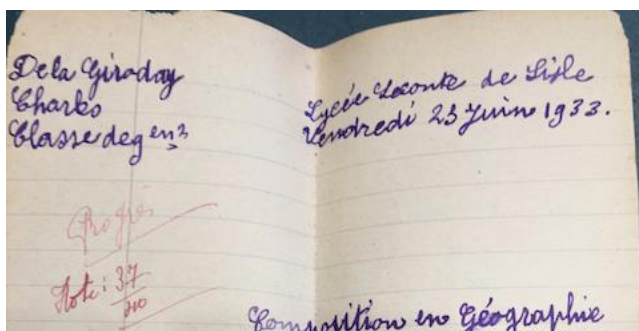 De la Giroday
Charles
Classe de 9en2
Lycée Leconte de Lisle
Vendredi 23 Juin 1933.
Progrès
Note: 37/40
Composition en Géographie